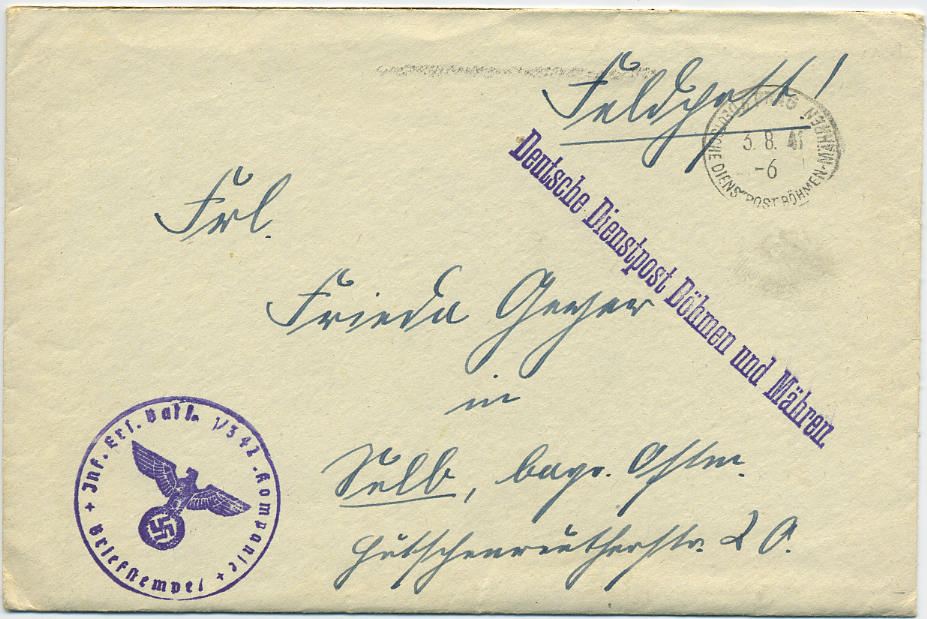 Feldpost!
PRAG
DEUTSCHE DIENSTPOST BÖHMEN-MÄHREN
3. 8. 41
-6
Deutsche Dienstpost Böhmen und Mähren
Frl.
Frieda Geyer
in
Selb, bayr. Ostm.
Hutschenreutherstr. 20.
Inf. Ers. Batl. I/342 . Kompanie
+ Briefstempel +